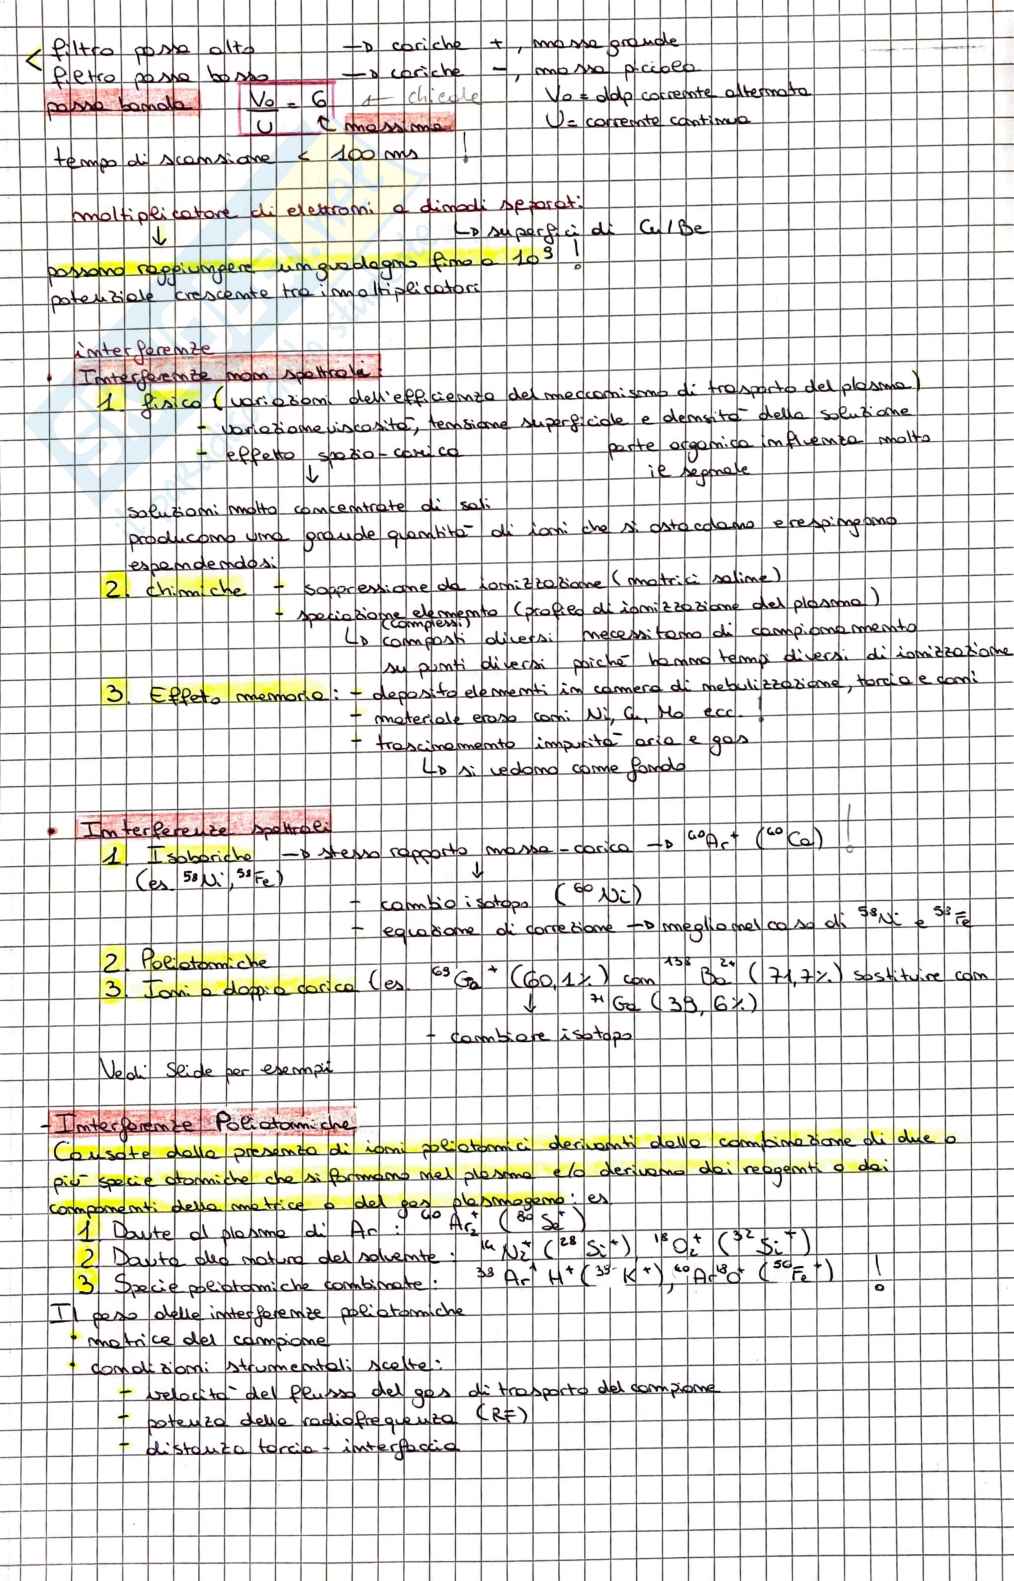 < filtro passa alto → cariche +, massa grande
filtro passa basso → cariche -, massa piccola
passa banda V₀/U = 6 ← chiede V₀ = ddp corrente alternata
↑ massima U = corrente continua
tempo di scansione < 100 ms !
moltiplicatore di elettroni a dinodi separati
↓ ↳ superfici di Cu/Be
possono raggiungere un guadagno fino a 10⁹ !
potenziale crescente tra i moltiplicatori
interferenze
• Interferenze non spettrali:
1. fisica (variazioni dell'efficienza del meccanismo di trasporto del plasma)
- variazione viscosità, tensione superficiale e densità della soluzione
- effetto spazio-carica parte organica influenza molto
↓ il segnale
soluzioni molto concentrate di sali
producono una grande quantità di ioni che si ostacolano e respingono
espandendosi
2. chimiche - soppressione da ionizzazione (matrici saline)
- speciazione elemento (profilo di ionizzazione del plasma)
(complessi)
↳ composti diversi necessitano di campionamento
su punti diversi poiché hanno tempi diversi di ionizzazione
3. Effeto memoria: - deposito elementi in camera di nebulizzazione, torcia e coni
- materiale eroso coni Ni, Cu, Mo ecc. !
- trascinamento impurità aria e gas
↳ si vedono come fondo
• Interferenze spettrali
1. Isobariche → stesso rapporto massa-carica → ⁴⁰Ar⁺ (⁴⁰Ca) !
(es ⁵⁸Ni, ⁵⁸Fe) ↓
- cambio isotopo (⁶⁰Ni)
- equazione di correzione → meglio nel caso di ⁵⁸Ni e ⁵⁸Fe
2. Poliatomiche
3. Ioni a doppia carica (es. ⁶⁹Ga⁺ (60,1%) con ¹³⁸Ba²⁺ (71,7%) sostituire con
↓ ⁷¹Ga (39,6%)
- cambiare isotopo
Vedi slide per esempi
- Interferenze Poliatomiche
Causate dalla presenza di ioni poliatomici derivanti dalla combinazione di due o
più specie atomiche che si formano nel plasma e/o derivano dai reagenti o dai
componenti della matrice o del gas plasmageno: es
1. Dovute al plasma di Ar: ⁴⁰Ar₂⁺ (⁸⁰Se⁺)
2. Dovuta alla natura del solvente: ¹⁴N₂⁺ (²⁸Si⁺) ¹⁶O₂⁺ (³²Si⁺)
3. Specie poliatomiche combinate: ³⁸Ar⁺H⁺ (³⁹K⁺), ⁴⁰Ar¹⁶O⁺ (⁵⁶Fe⁺) !
Il peso delle interferenze poliatomiche
• matrice del campione
• condizioni strumentali scelte:
- velocità del flusso del gas di trasporto del campione
- potenza della radiofrequenza (RF)
- distanza torcia - interfaccia